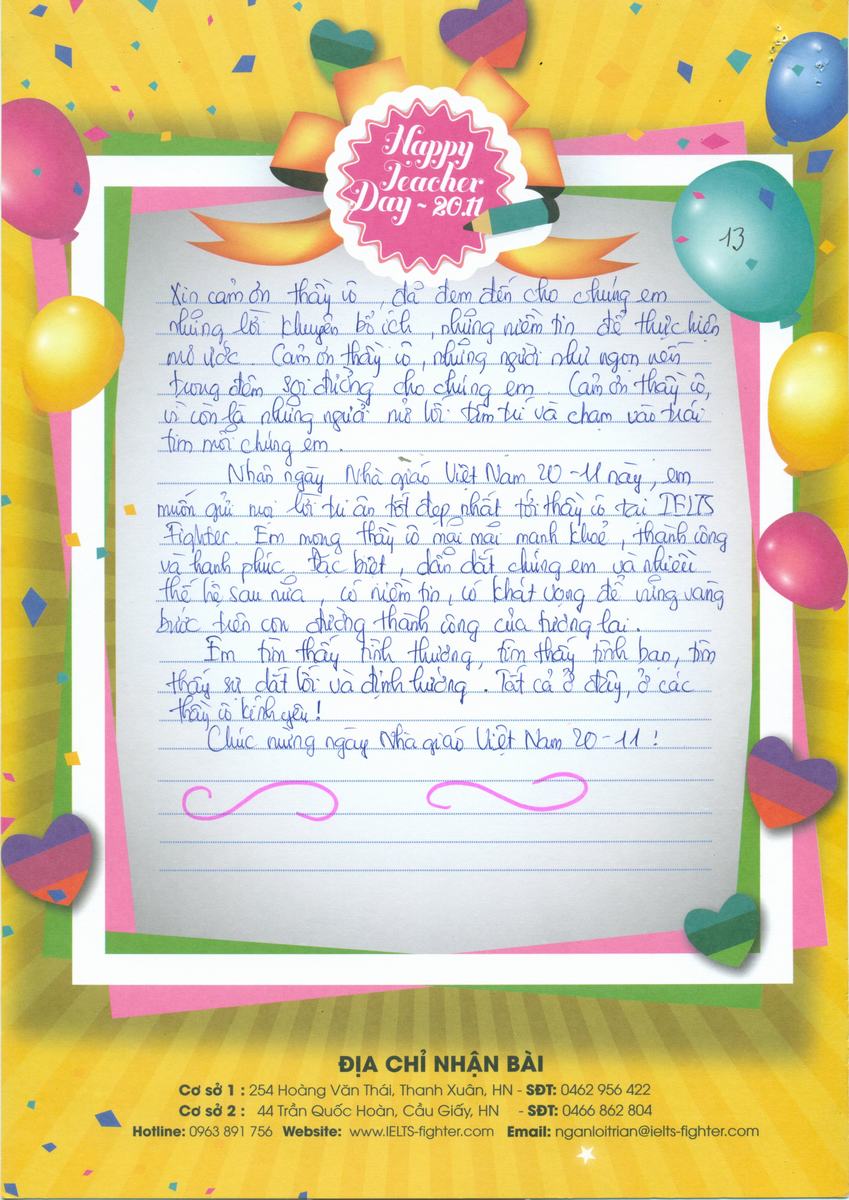 Happy
Teacher
Day ~ 20.11
13
Xin cảm ơn thầy cô, đã đem đến cho chúng em
những lời khuyên bổ ích, những niềm tin để thực hiện
mơ ước. Cảm ơn thầy cô, những người như ngọn nến
trong đêm soi đường cho chúng em. Cảm ơn thầy cô,
vì còn là những người mở lối tâm tư và chạm vào trái
tim mỗi chúng em.
Nhân ngày Nhà giáo Việt Nam 20-11 này, em
muốn gửi mọi lời tri ân tốt đẹp nhất tới thầy cô tại IELTS
Fighter. Em mong thầy cô mãi mãi mạnh khoẻ, thành công
và hạnh phúc. Đặc biệt, dẫn dắt chúng em và nhiều
thế hệ sau nữa, có niềm tin, có khát vọng để vững vàng
bước trên con đường thành công của tương lai.
Em tìm thấy tình thương, tìm thấy tình bạn, tìm
thấy sự dắt lối và định hướng. Tất cả ở đây, ở các
thầy cô kính yêu!
Chúc mừng ngày Nhà giáo Việt Nam 20-11!
ĐỊA CHỈ NHẬN BÀI
Cơ sở 1 : 254 Hoàng Văn Thái, Thanh Xuân, HN - SĐT: 0462 956 422
Cơ sở 2 : 44 Trần Quốc Hoàn, Cầu Giấy, HN - SĐT: 0466 862 804
Hotline: 0963 891 756 Website: www.IELTS-fighter.com Email: nganloitrian@ielts-fighter.com